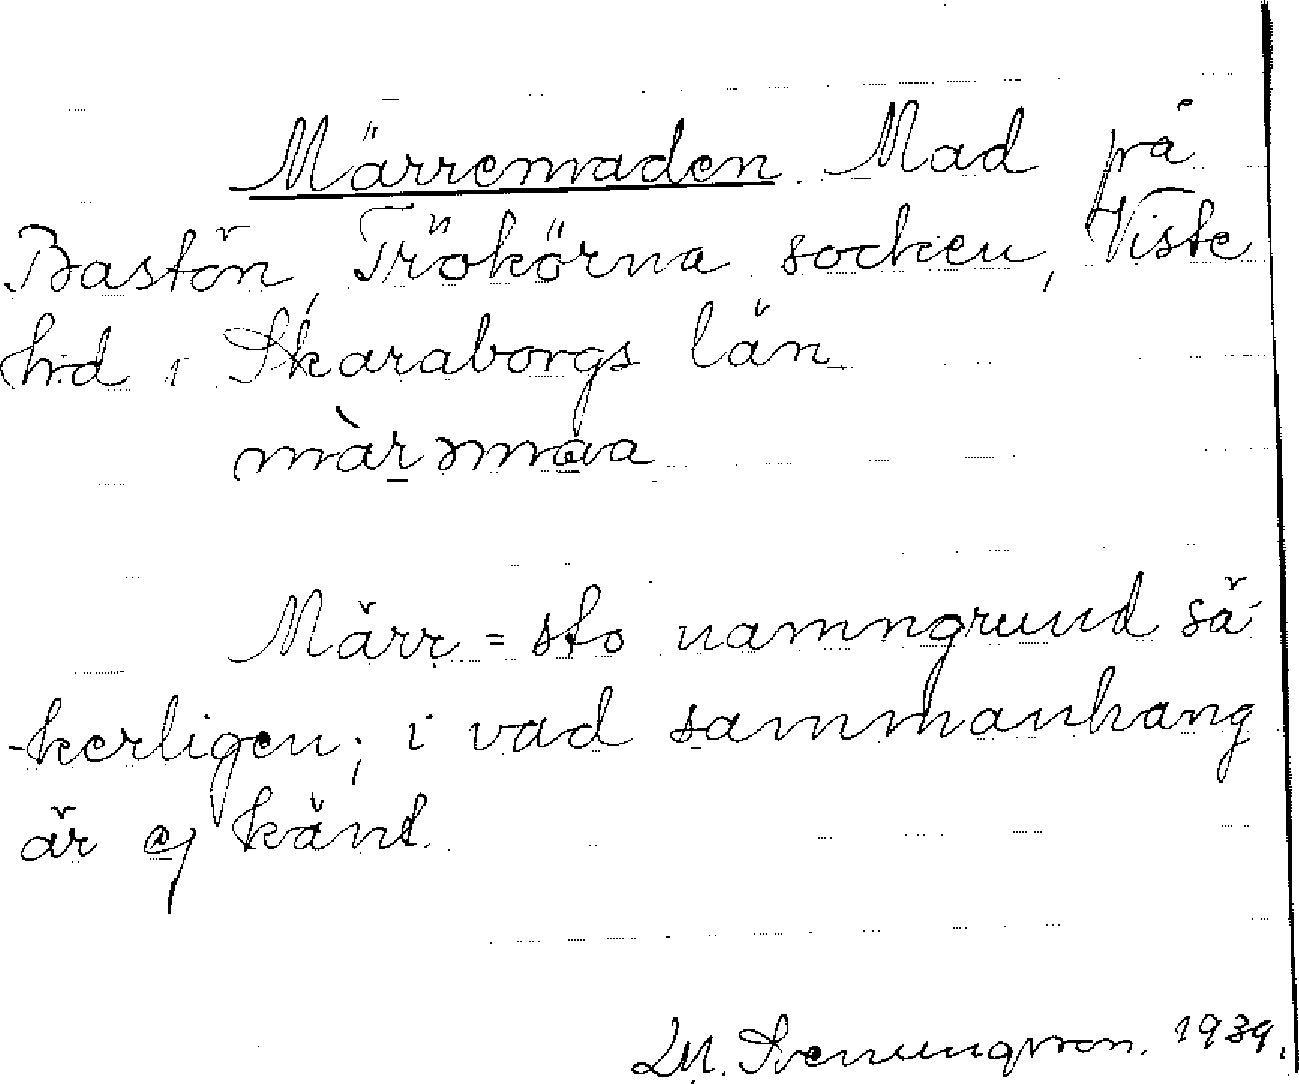 Märremaden. Mad på
Bastön, Trökörna socken, Viste
hrd i Skaraborgs län
màrəmava
Märr = sto namngrund sä-
kerligen; i vad sammanhang
är ej känt.
1939.